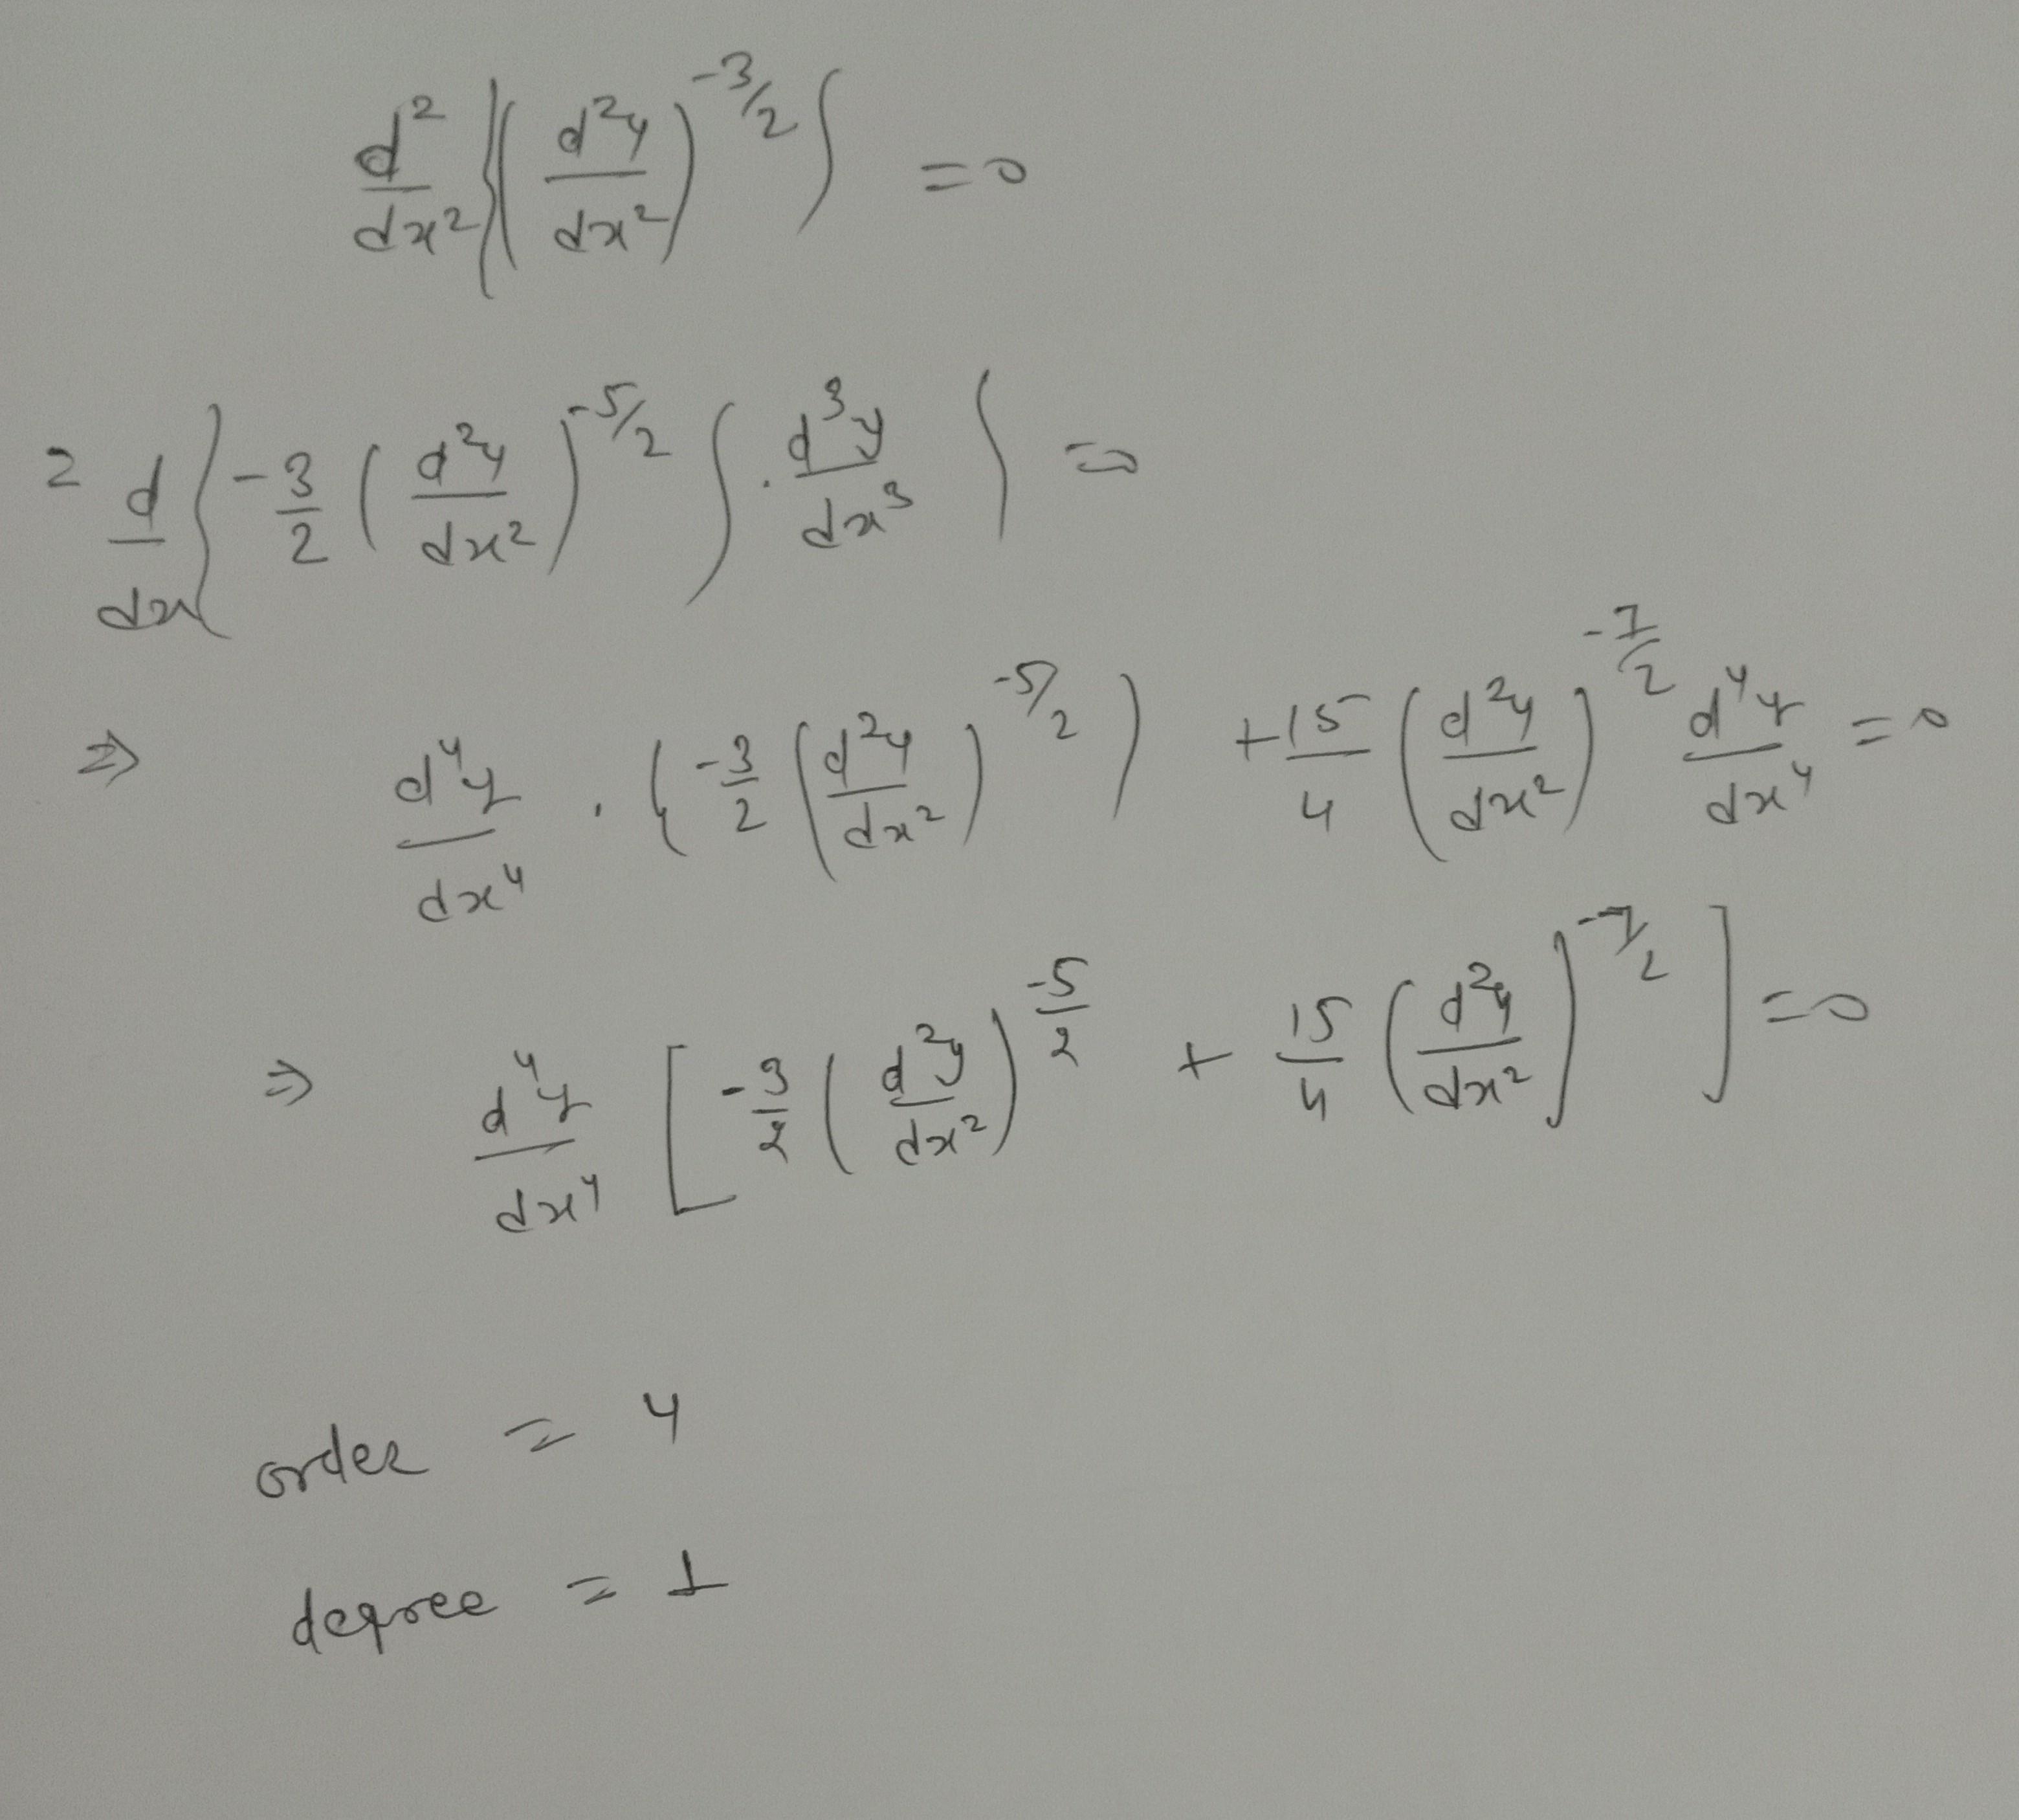 d²/dx² {(d²y/dx²)^(-3/2)} =0
= d/dx {-3/2 (d²y/dx²)^(-5/2)} . d³y/dx³ } =0
⇒ d⁴y/dx⁴ . (-3/2 (d²y/dx²)^(-5/2)) + 15/4 (d²y/dx²)^(-7/2) d⁴y/dx⁴ =0
⇒ d⁴y/dx⁴ [-3/2 (d²y/dx²)^(-5/2) + 15/4 (d²y/dx²)^(-7/2)] =0
order = 4
degree = 1